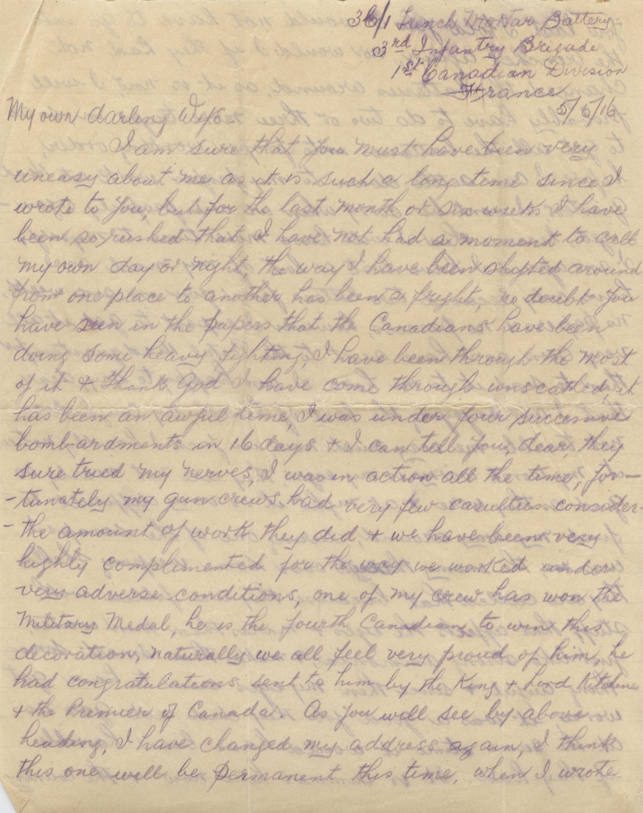 3b/1 Trench Mortar Battery
3rd Infantry Brigade
1st Canadian Division
France
5/5/16
My own darling Wife
I am sure that you must have been very
uneasy about me as it is such a long time since I
wrote to you, but for the last month or six weeks I have
been so rushed that I have not had a moment to call
my own day or night, the way I have been shifted around
from one place to another has been a fright, no doubt you
have seen in the papers that the Canadians have been
doing some heavy fighting, I have been through the most
of it & thank God I have come through unscathed, it
has been an awful time, I was under four successive
bombardments in 16 days & I can tell you dear they
sure tried my nerves, I was in action all the time, for-
-tunately my gun crews had very few casulties consider-
- the amount of work they did & we have been very
highly complimented for the way we worked under
very adverse conditions, one of my crew has won the
Military Medal, he is the fourth Canadian to win this
decoration, naturally we all feel very proud of him, he
had congratulations sent to him by the King & Lord Kitchner
& the Premier of Canada. As you will see by above
heading, I have changed my address again, I think
this one will be permanent this time, when I wrote